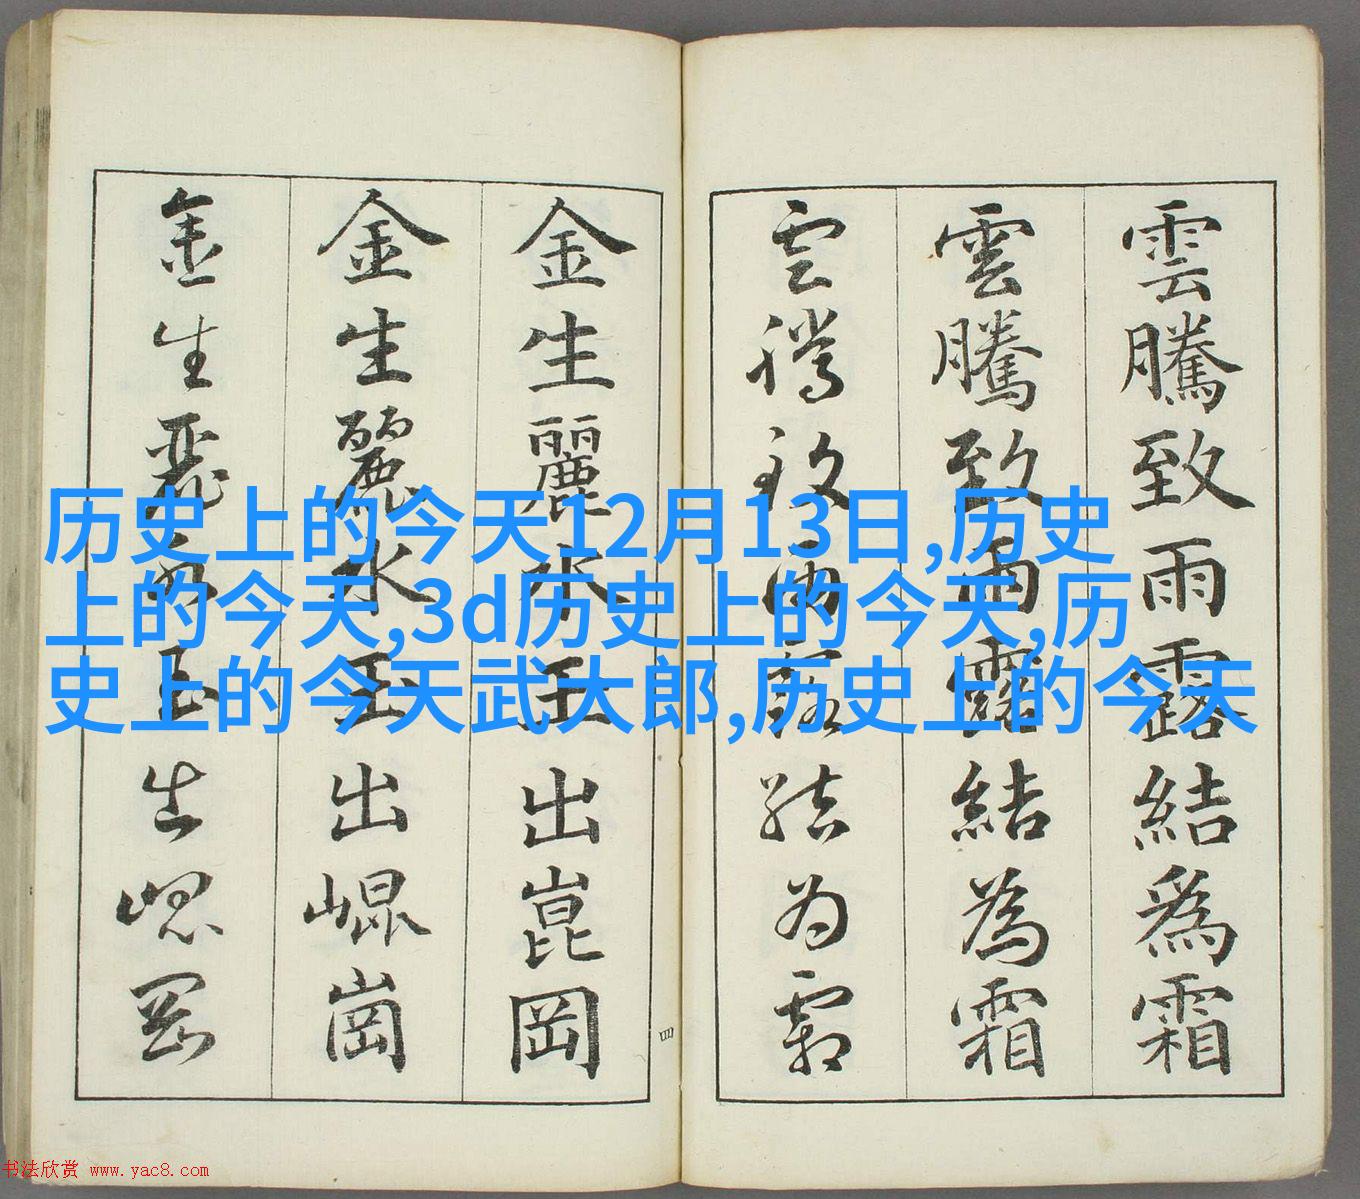 雲騰致雨露結為霜
雲騰致雨露結為霜
雲騰致雨露結為霜
金生麗水玉出崑岡
金生麗水玉出崐崗
金生麗水玉出崐岡
四
历史上的今天12月13日,历史
上的今天,3d历史上的今天,历
史上的今天武大郎,历史上的今天
书法欣赏 www.yac8.com